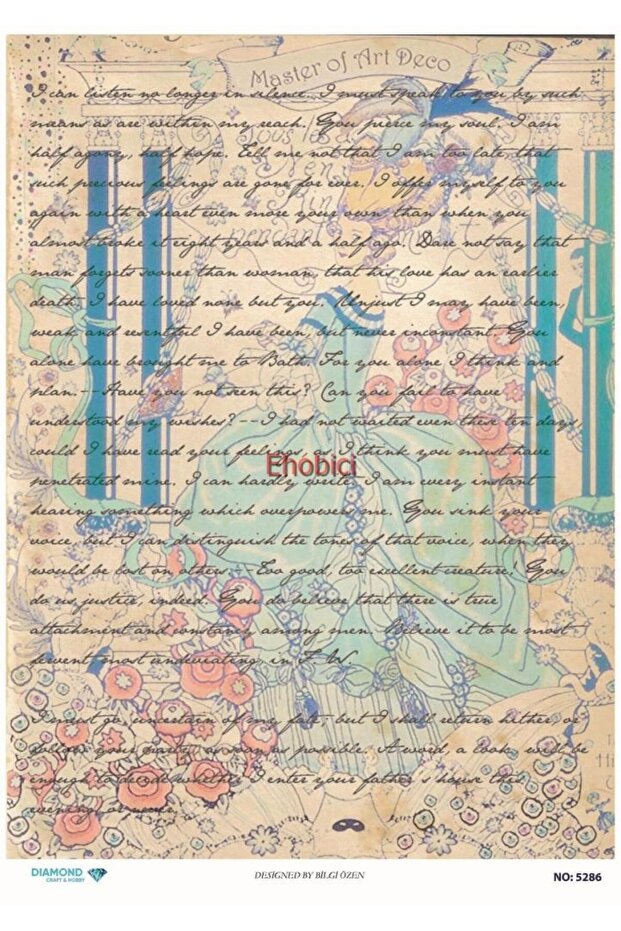 Master of Art Deco
I can listen no longer in silence. I must speak to you by such
means as are within my reach. You pierce my soul. I am
half agony, half hope. Tell me not that I am too late, that
such precious feelings are gone for ever. I offer myself to you
again with a heart even more your own than when you
almost broke it eight years and a half ago. Dare not say that
man forgets sooner than woman, that his love has an earlier
death. I have loved none but you. Unjust I may have been,
weak and resentful I have been, but never inconstant. You
alone have brought me to Bath. For you alone I think and
plan.- Have you not seen this? Can you fail to have
understood my wishes?-- I had not waited even these ten days,
could I have read your feelings, as I think you must have
penetrated mine. I can hardly write. I am every instant
hearing something which overpowers me. You sink your
voice, but I can distinguish the tones of that voice, when they
would be lost on others.-- Too good, too excellent creature! You
do us justice, indeed. You do believe that there is true
attachment and constancy among men. Believe it to be most
fervent, most undeviating, in F. W.
I must go, uncertain of my fate; but I shall return hither, or
follow your party, as soon as possible. A word, a look, will be
enough to decide whether I enter your father's house this
evening or never.
Ehobici
DIAMOND
CRAFT & HOBBY
DESİGNED BY BİLGİ ÖZEN
NO: 5286